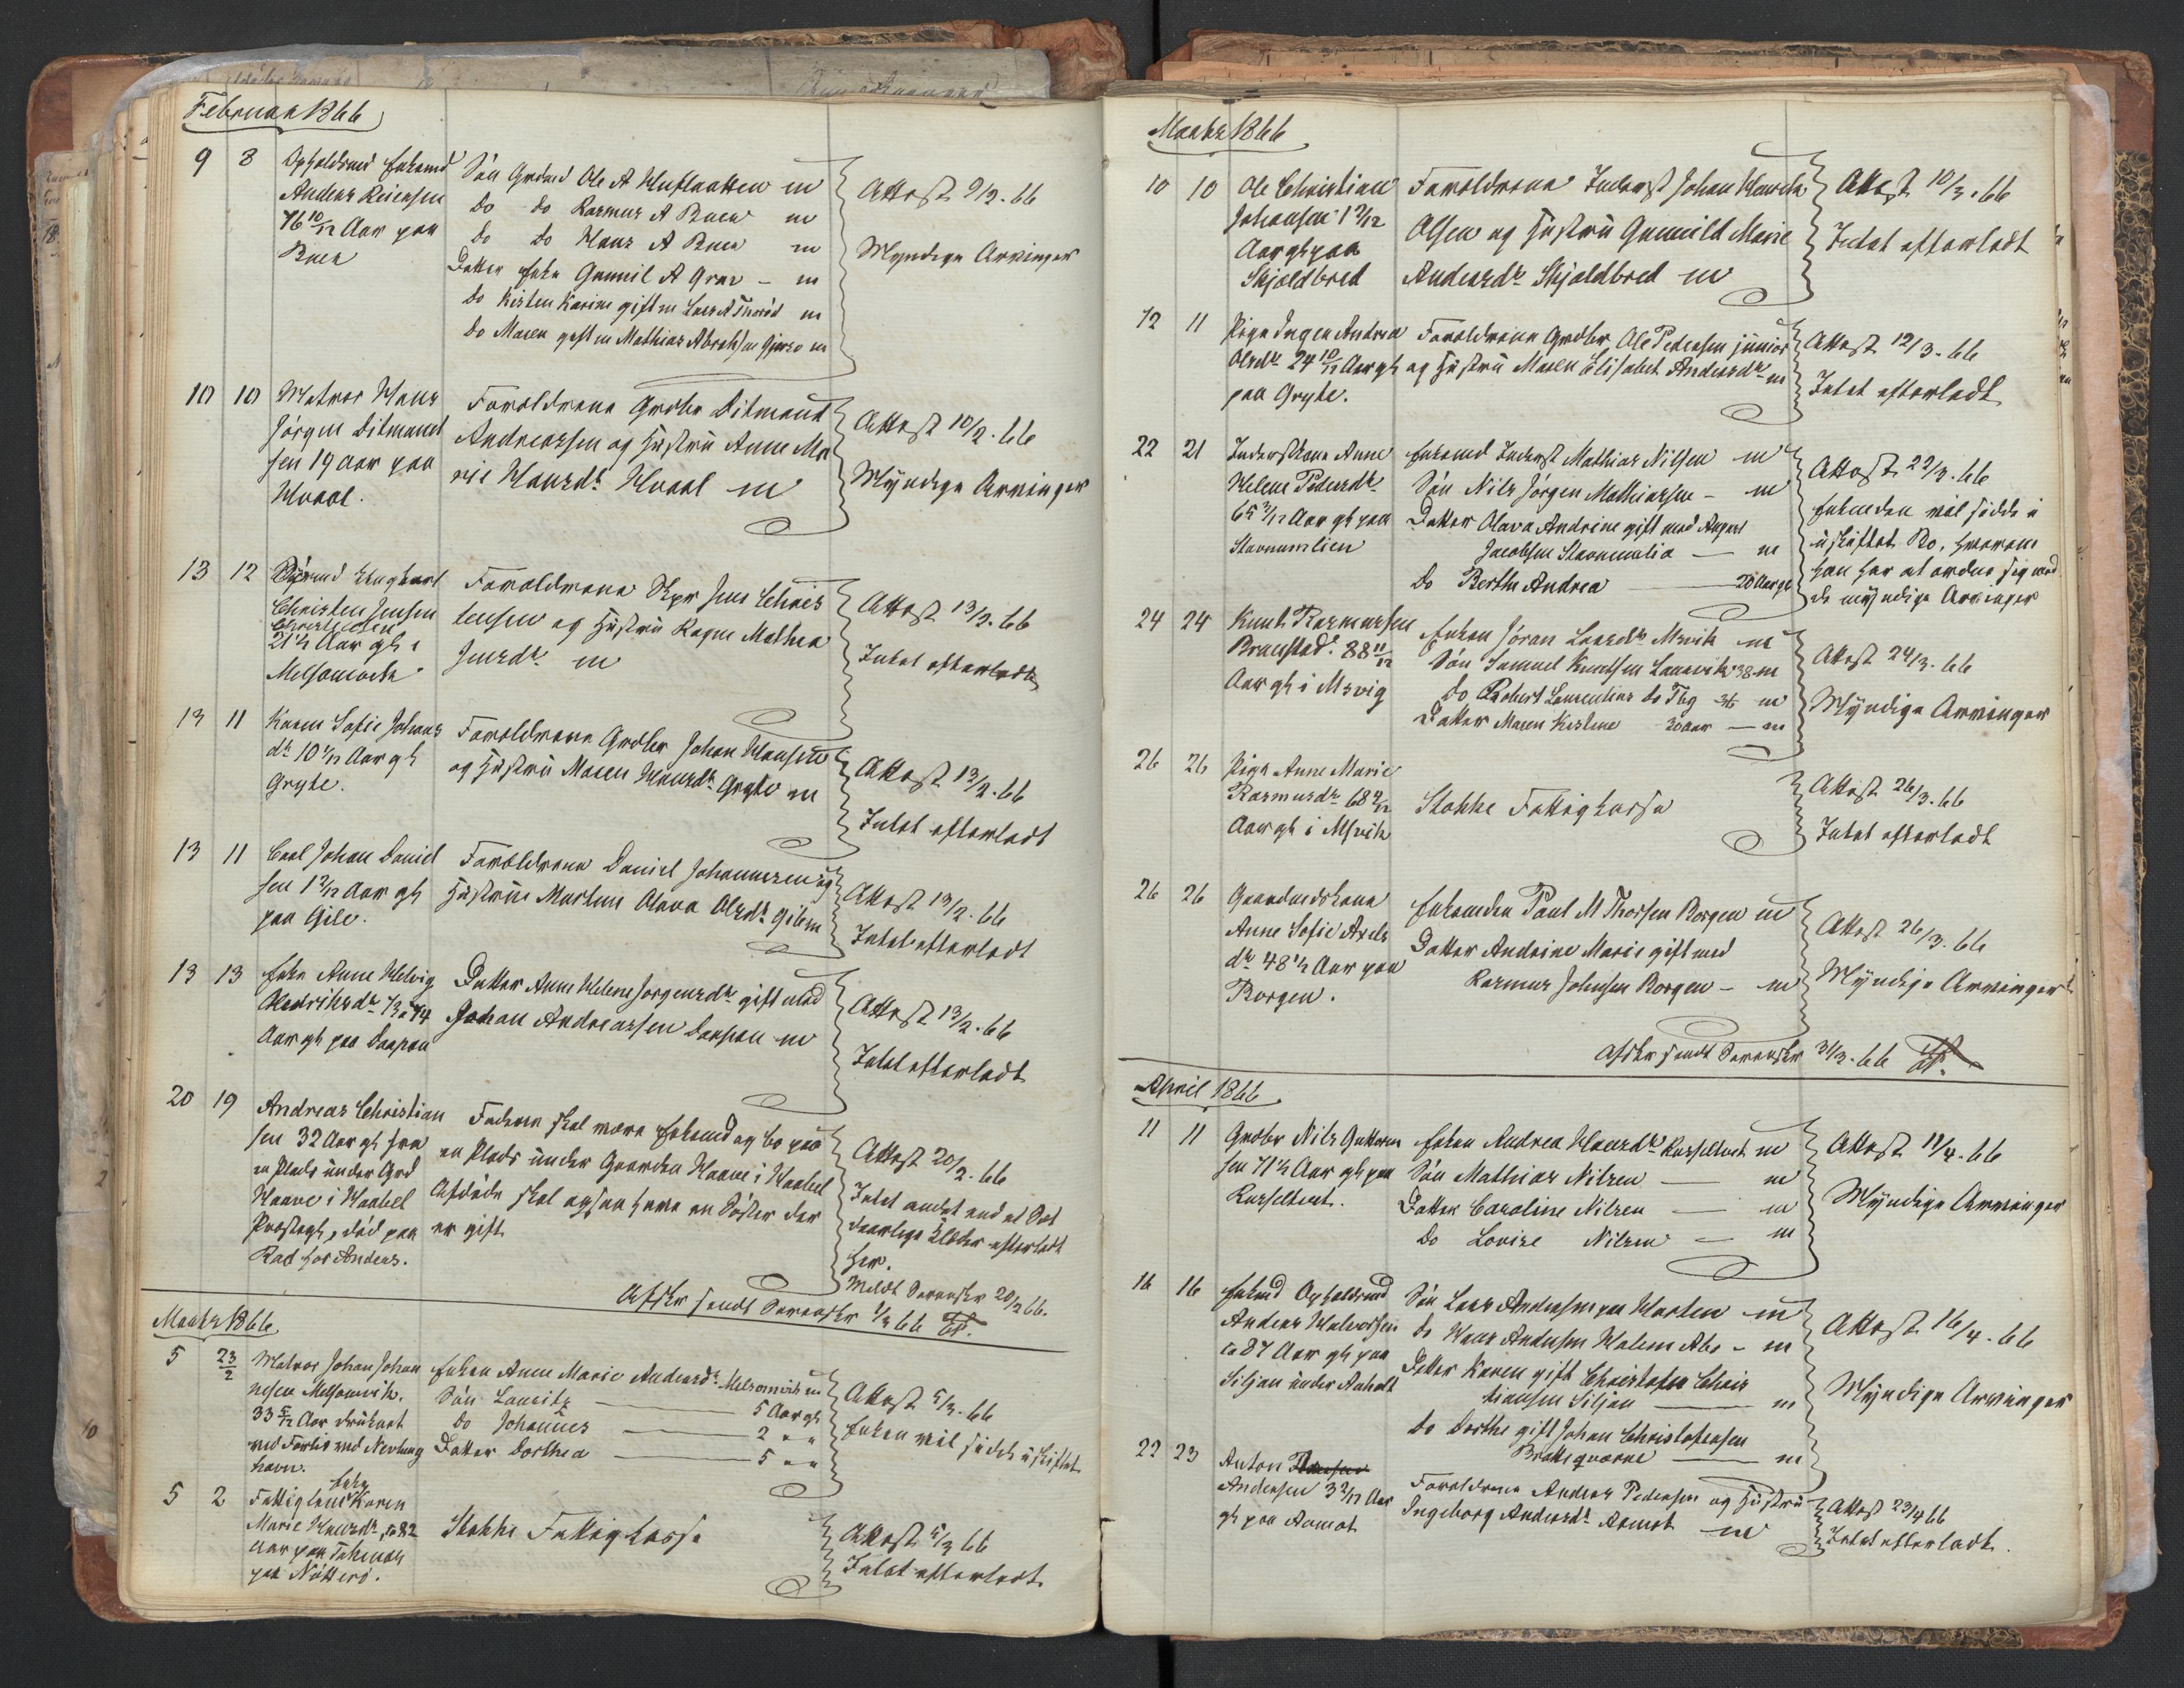 Februar 1866
9 8 Opholdsmd Enkemd
Anders Reiersen
76 10/12 Aar paa
Buer
Søn Grdmd Ole A m
Do Do Rasmus A Buer m
Do Do Hans A Buer m
Datter Enke Gunnil A Grav - m
Do Kirsten Karine gift m Lars A m
Do Maren gift m Mathias Abrahsen m
Attest 9/2. 66
Myndige Arvinger
10 10 Matros Hans
Jørgen Ditmand
sen 19 aar paa
Hvaal.
Forældrene Grdbr Ditmand
Andreassen og Hustru Anne Ma
rie Hansdr Hvaal m
Attest 10/2. 66
Myndige Arvinger
13 12
Christen Jensen
Christensen
21½ Aar gl i
Melsomvik.
Forældrene Skpr Jens Chris
tensen og Hustru Ragne Mathea
Jensdr m
Attest 13/2. 66
Intet efterladt
13 11 Karen Sofie Johans
dr 10 1/12 Aar gl
Gryte.
Forældrene Grdbr Johan Hansen
og Hustru Maren Hansdr Gryte m
Attest 13/2. 66
Intet efterladt
13 11 Carl Johan Daniel
sen 1 2/12 Aar gl
paa Gile.
Forældrene Daniel Johannesen og
Hustru Marthe Olava Olsdr Gile m
Attest 13/2. 66
Intet efterladt
13 13 Enke Anne Helvig
73 a 74
Aar gl paa
Datter Anne Helene Jørgensdr gift med
Johan Andreassen m
Attest 13/2. 66
Intet efterladt
20 19 Andreas Christian
sen 32 Aar gl fra
en Plads under Grd
Haave i Waabel
Præstegj, død paa
Rad hos Anders.
Faderen skal være Enkemd og bo paa
en Plads under Gaarden Haave i Waabel
Afdøde skal ogsaa have en Søster der
er gift
Attest 20/2. 66
Intet andet end et Sæt
daarlige Klæder efterladt
her.
Meldt Sorenskr 20/2 66.
Afskr sendt Sorenskr 1/3 66
Marts 1866
5 23/2 Matros Johan Johan
nesen Melsomvik.
33 5/12 Aar druknet
ved Forlis ved Nevlung
havn.
Enken Anne Marie Andersdr Melsomvik m
Søn Lauritz 5 Aar gl
Do Johannes 2 " "
Datter Dorthea 5 " "
Attest 5/3. 66
Enken vil sidde uskiftet
5 2 Fattiglem Enke Karen
Marie Hansdr, ca 82
aar paa
paa Nøtterø.
Stokke Fattigkasse
Attest 5/3 66
Intet efterladt.
Marts 1866
10 10 Ole Christian
Johansen 1 7/12
Aar gl paa
Skjoldbred
Forældrene Inderst Johan Henrik
Olsen og Hustru Gunnild Marie
Andersdr Skjoldbred m
Attest 10/3. 66
Intet efterladt
12 11 Pige Ingen Andrea
Olsdr 24 10/12 Aar gl
paa Gryte.
Forældrene Grdbr Ole Pedersen junior
og Hustru Maren Elisabet Andersdr m
Attest 12/3. 66
Intet efterladt
22 21 Inderstkone Anne
Helene Pedersdr
65 3/12 Aar gl paa
Stavnumlien
Enkemd Inderst Mathias Nilsen m
Søn Nils Jørgen Mathiassen - m
Datter Olava Andrine gift med August
Jacobsen Stavnumlia - m
Do Berthe Andrea 20 Aar gl
Attest 22/3. 66
Enkemden vil sidde i
uskiftet Bo, hvorom
han har at ordne sig med
de myndige Arvinger
24 24 Knut Rasmussen
88 11/12
Aar gl i Msvig
Enken Jøran Larsdr Msvik m
Søn Samuel Knutsen Laurvik 38 m
Do Robert Laurentius do Tbg 36 m
Datter Maren Kirstine 30 aar - m
Attest 24/3. 66
Myndige Arvinger
26 26 Pige Anne Marie
Rasmusdr 68 9/12
Aar gl i Msvik
Stokke Fattigkasse
Attest 26/3. 66
Intet efterladt
26 26 Gaardmdskone
Anne Sofie Axels
dr 48½ Aar paa
Borgen.
Enkemden Paul M Thorsen Borgen m
Datter Andrine Marie gift med
Rasmus Johnsen Borgen - m
Attest 26/3. 66
Myndige Arvinger
Afskr sendt Sorenskr 31/3. 66
April 1866
11 11 Grdbr Nils Guttorm
sen 71½ Aar gl paa
Enken Andrea Hansdr m
Søn Mathias Nilsen - m
Datter Caroline Nilsen - m
Do Lovise Nilsen - m
Attest 11/4. 66
Myndige Arvinger
16 16 Enkemd Opholdsmd
Anders Halvorsen
ca 87 Aar gl paa
Siljan under Aaholt
Søn Lars Andersen paa m
Do Hans Andersen - m
Datter Karen gift Christofer Chris
tiansen Siljan m
Do Dorthe gift Johan Christofersen
m
Attest 16/4. 66
Myndige Arvinger
22 23 Anton
Andersen 3 2/12 Aar
gl paa Aamot
Forældrene Anders Pedersen og Hustru
Ingeborg Andersdr Aamot m
Attest 23/4 66
Intet efterladt.